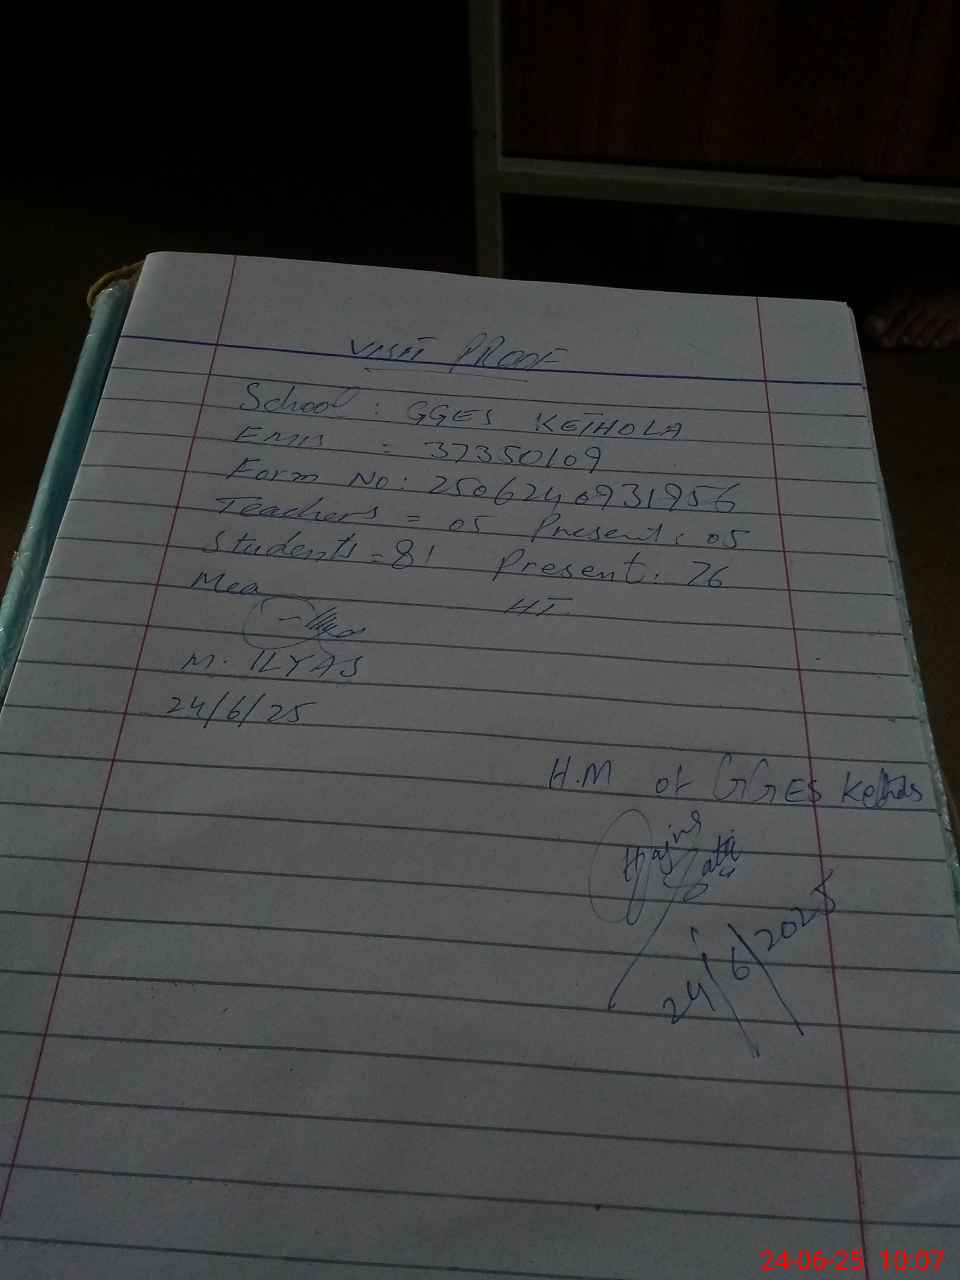 VISIT PROOF
School : GGES KETHOLA
EMIS = 37350109
Form No: 2506240931956
Teachers = 05 Present: 05
Students = 81 Present: 76
Mea HT
M. ILYAS
24/6/25
H.M of GGES
24/6/2025
24-06-25 10:07